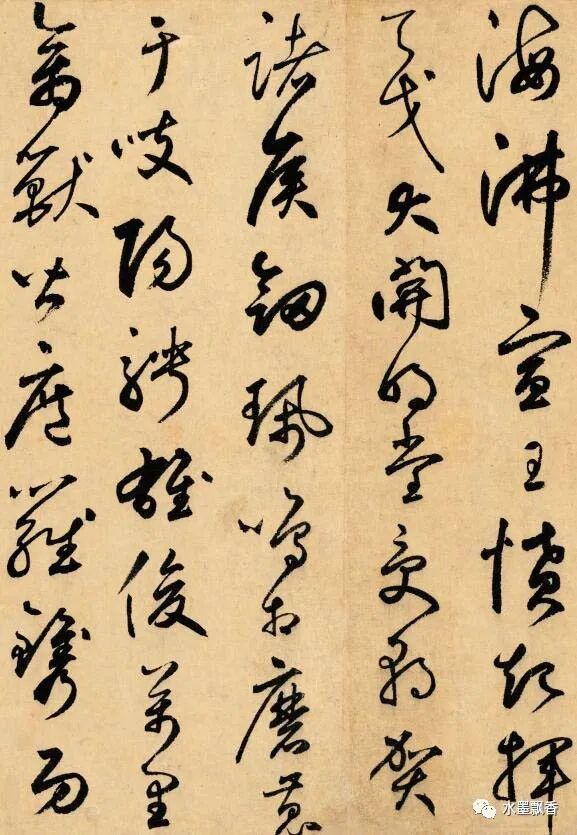 海沸宣王憤起揮
天戈大開明堂受朝賀
諸侯劍珮鳴相磨蒐
于岐陽騁雄俊萬里
禽獸皆遮羅鐫功
水墨飘香